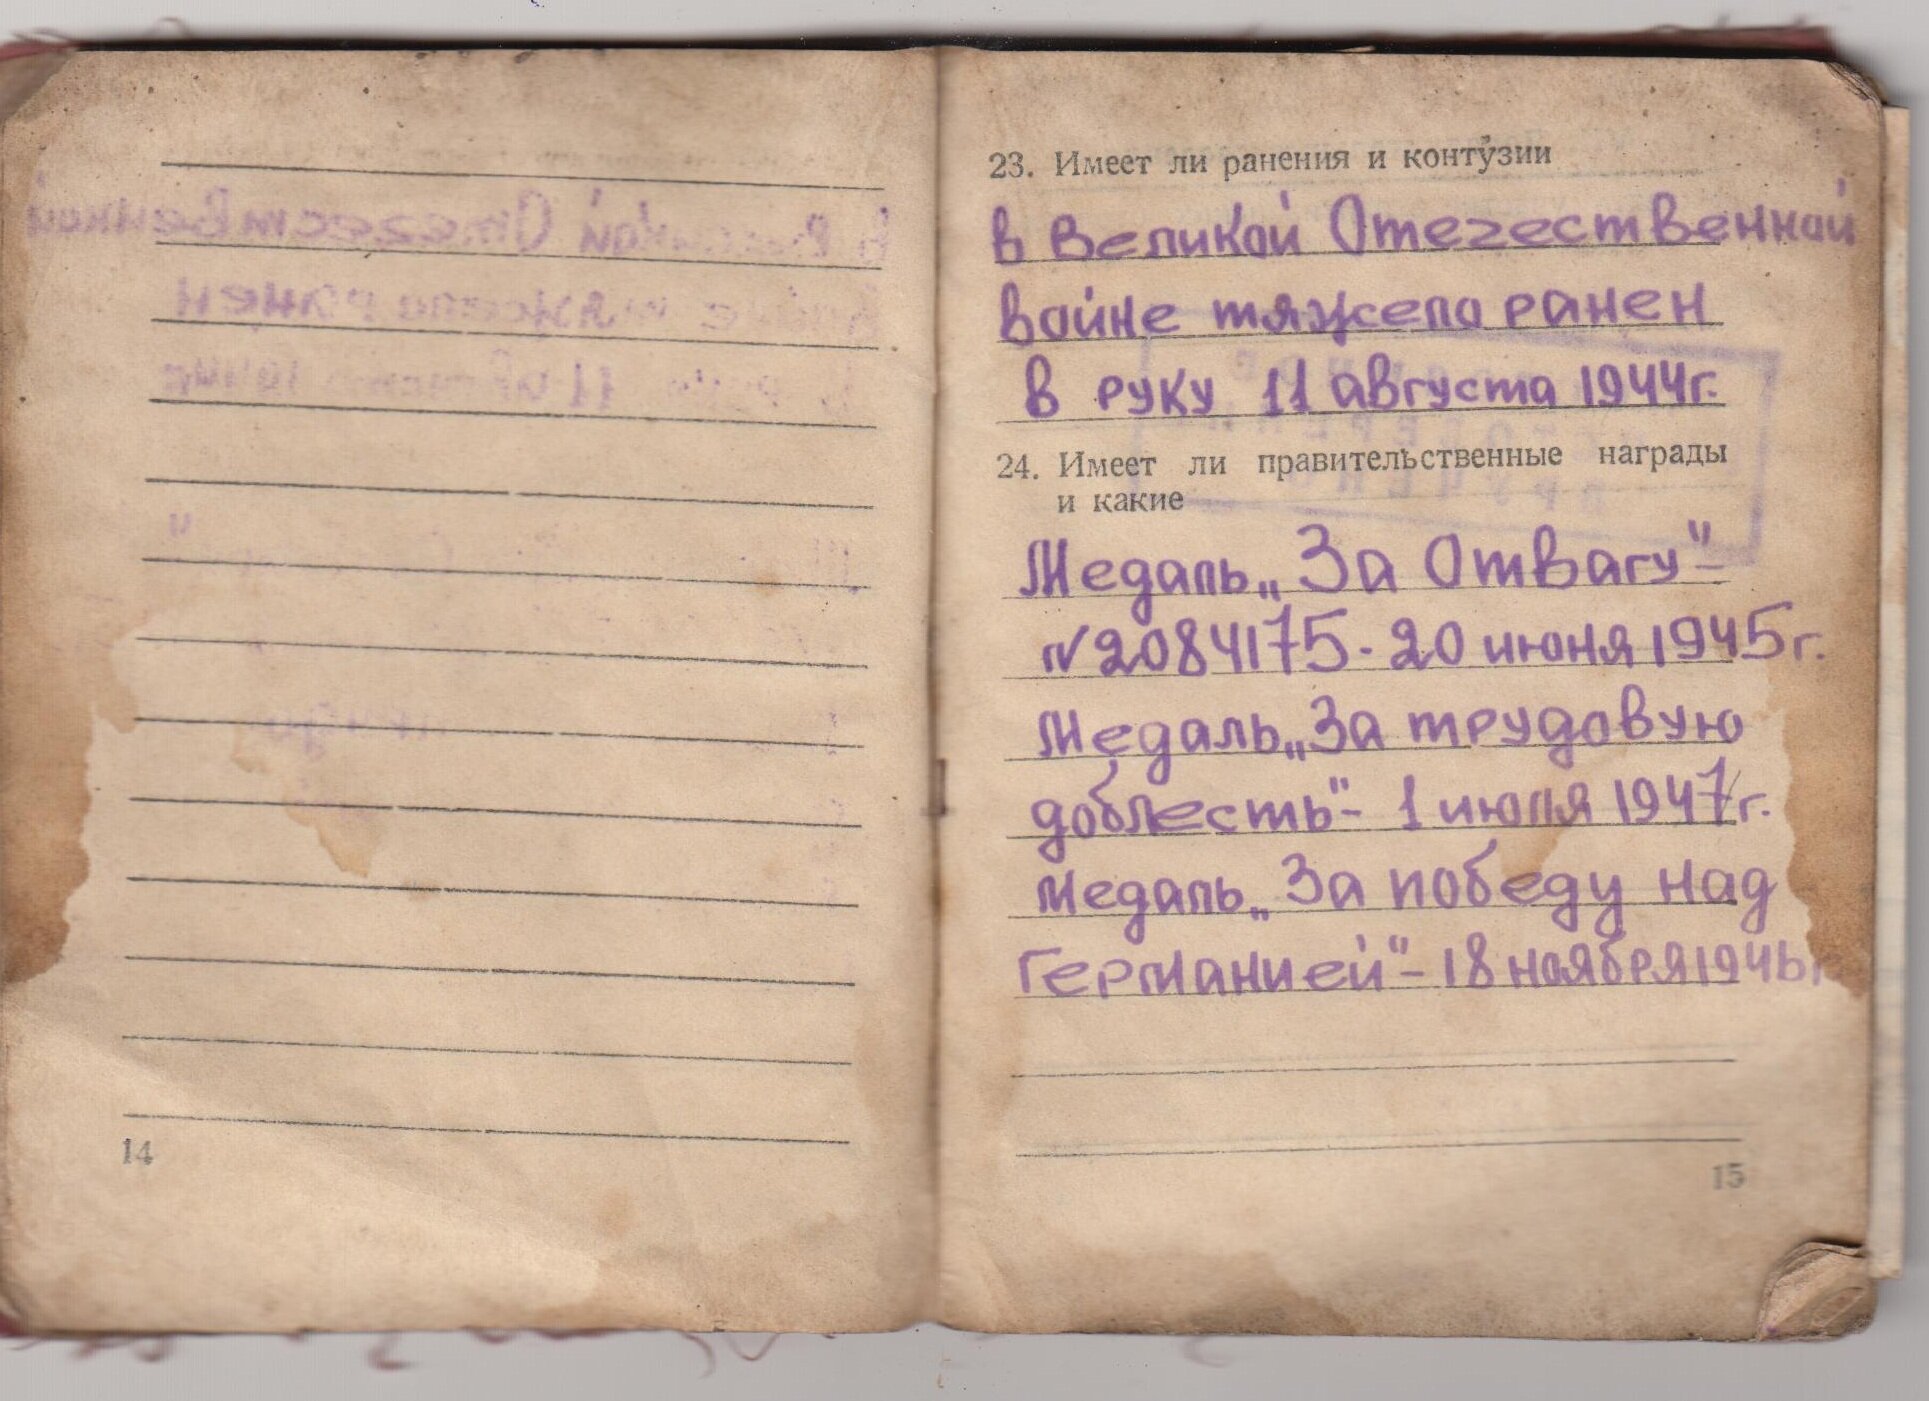 14
23. Имеет ли ранения и контузии
в Великой Отечественной
войне тяжело ранен
в руку 11 августа 1944г.
24. Имеет ли правительственные награды
и какие
Медаль „За Отвагу"-
№2084175-20 июня 1945г.
Медаль „За трудовую
доблесть"- 1 июля 1947г.
Медаль „За победу над
Германией"-18 ноября 1946г
15